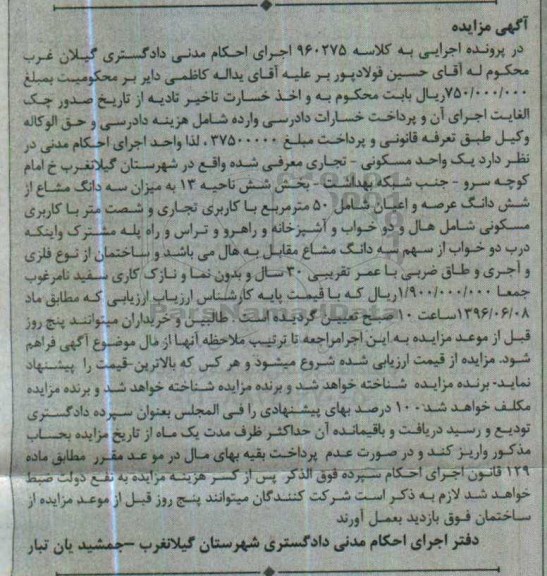 آگهی مزایده
در پرونده اجرایی به کلاسه ۹۶۰۲۷۵ اجرای احکام مدنی دادگستری گیلان غرب
محکوم له آقای حسین فولادپور بر علیه آقای یداله کاظمی دایر بر محکومیت بمبلغ
۷۵۰/۰۰۰/۰۰۰ریال بابت محکوم به و اخذ خسارت تاخیر تادیه از تاریخ صدور چک
الغایت اجرای آن و پرداخت خسارات دادرسی وارده شامل هزینه دادرسی و حق الوکاله
وکیل طبق تعرفه قانونی و پرداخت مبلغ ۳۷۵۰۰۰۰۰ ، لذا واحد اجرای احکام مدنی در
نظر دارد یک واحد مسکونی - تجاری معرفی شده واقع در شهرستان گیلانغرب خ امام
کوچه سرو - جنب شبکه بهداشت - بخش شش ناحیه ۱۳ به میزان سه دانگ مشاع از
شش دانگ عرصه و اعیان شامل ۵۰ مترمربع با کاربری تجاری و شصت متر با کاربری
مسکونی شامل هال و دو خواب و آشپزخانه و راهرو و تراس و راه پله مشترک واینکه
درب دو خواب از سهم سه دانگ مشاع مقابل به هال می باشد و ساختمان از نوع فلزی
و آجری و طاق ضربی با عمر تقریبی ۳۰ سال و بدون نما و نازک کاری سفید نامرغوب
جمعا ۱/۹۰۰/۰۰۰/۰۰۰ریال که با قیمت پایه کارشناس ارزیاب ارزیابی که مطابق ماد
۱۳۹۶/۰۶/۰۸ساعت ۱۰ صبح تعیین گردیده است . طالبین و خریداران میتوانند پنج روز
قبل از موعد مزایده به این اجرامراجعه تا ترتیب ملاحظه آنها از مال موضوع آگهی فراهم
شود. مزایده از قیمت ارزیابی شده شروع میشود و هر کس که بالاترین قیمت را پیشنهاد
نماید- برنده مزایده شناخته خواهد شد و برنده مزایده شناخته خواهد شد و برنده مزایده
مکلف خواهد شد- ۱۰ درصد بهای پیشنهادی را فی المجلس بعنوان سپرده دادگستری
تودیع و رسید دریافت و باقیمانده آن حداکثر ظرف مدت یک ماه از تاریخ مزایده بحساب
مذکور واریز کند و در صورت عدم پرداخت بقیه بهای مال در مو عد مقرر مطابق ماده
۱۲۹ قانون اجرای احکام سپرده فوق الذکر پس از کسر هزینه مزایده به نفع دولت ضبط
خواهد شد لازم به ذکر است شرکت کنندگان میتوانند پنج روز قبل از موعد مزایده از
ساختمان فوق بازدید بعمل آورند
دفتر اجرای احکام مدنی دادگستری شهرستان گیلانغرب –جمشید یان تبار